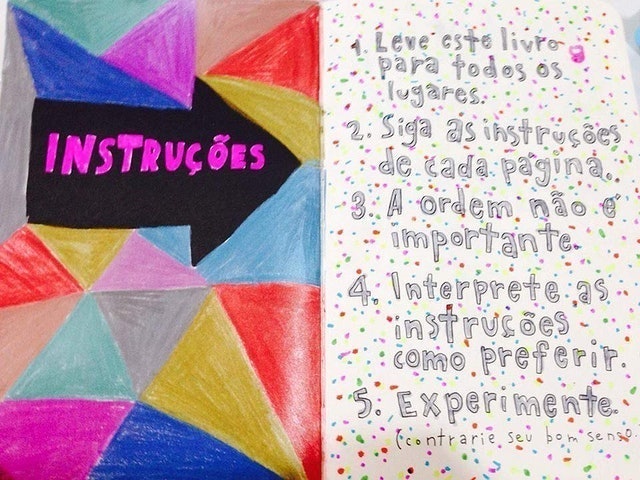 INSTRUÇÕES
1. Leve este livro
para todos os
lugares.
2. Siga as instruções
de cada pagina.
3. A ordem não é
importante.
4. Interprete as
instruções
como preferir.
5. Experimente.
(contrarie seu bom senso